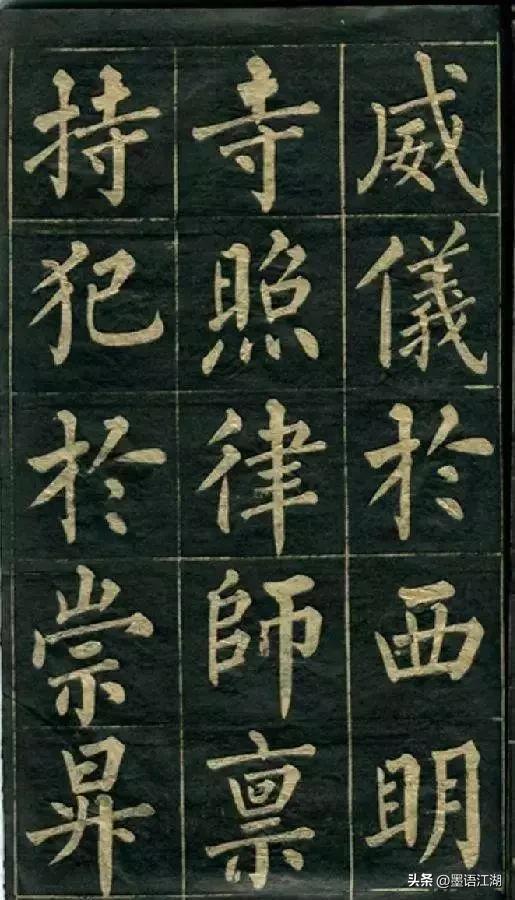 威儀於西明
寺照律師禀
持犯於崇昇
头条 @墨语江湖